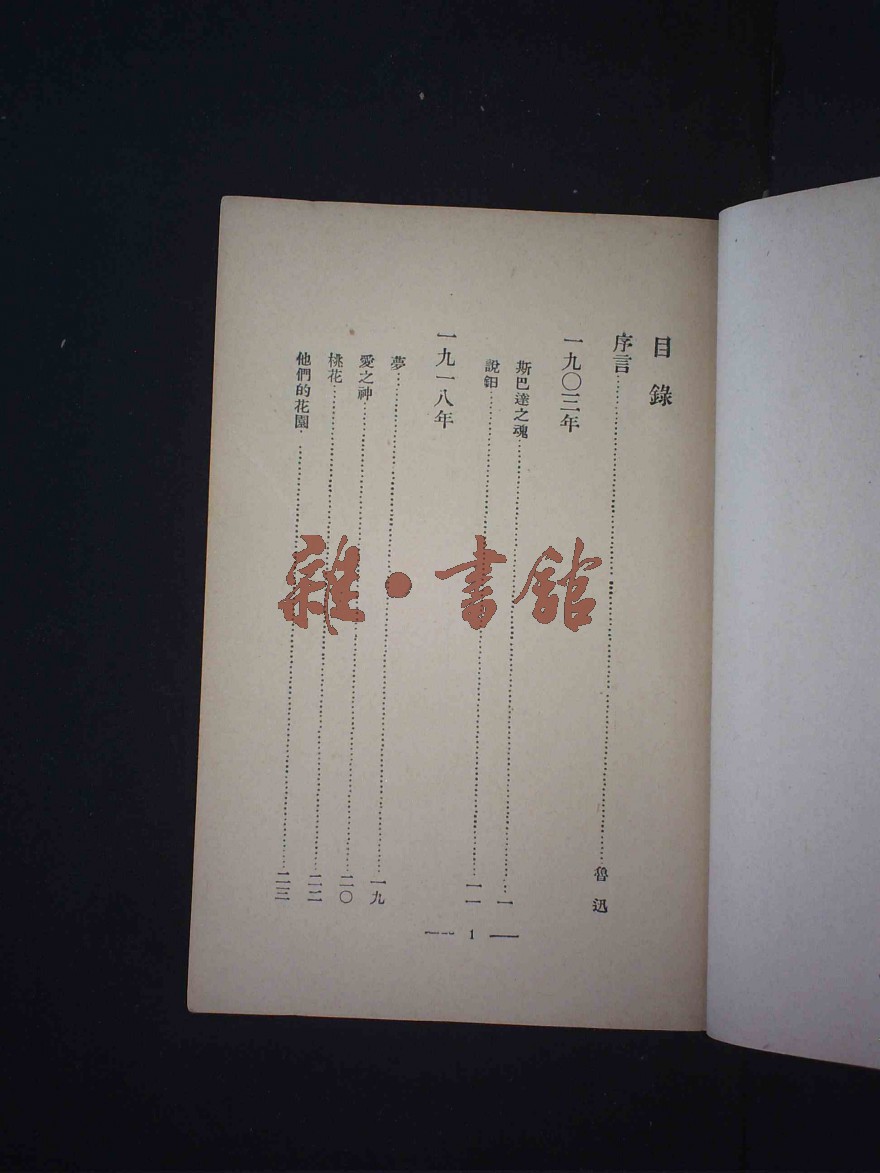 目錄
序言……魯迅
一九〇三年
斯巴達之魂……一
說鈤……一一
一九一八年
夢……一九
愛之神……二〇
桃花……二二
他們的花園……二三
— 1 —
雜·書館